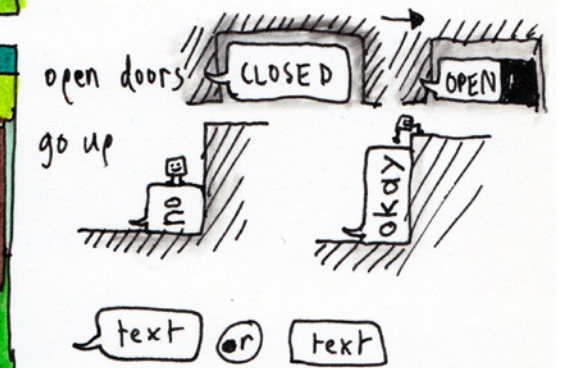 open doors CLOSED OPEN
go up
no okay
text or text